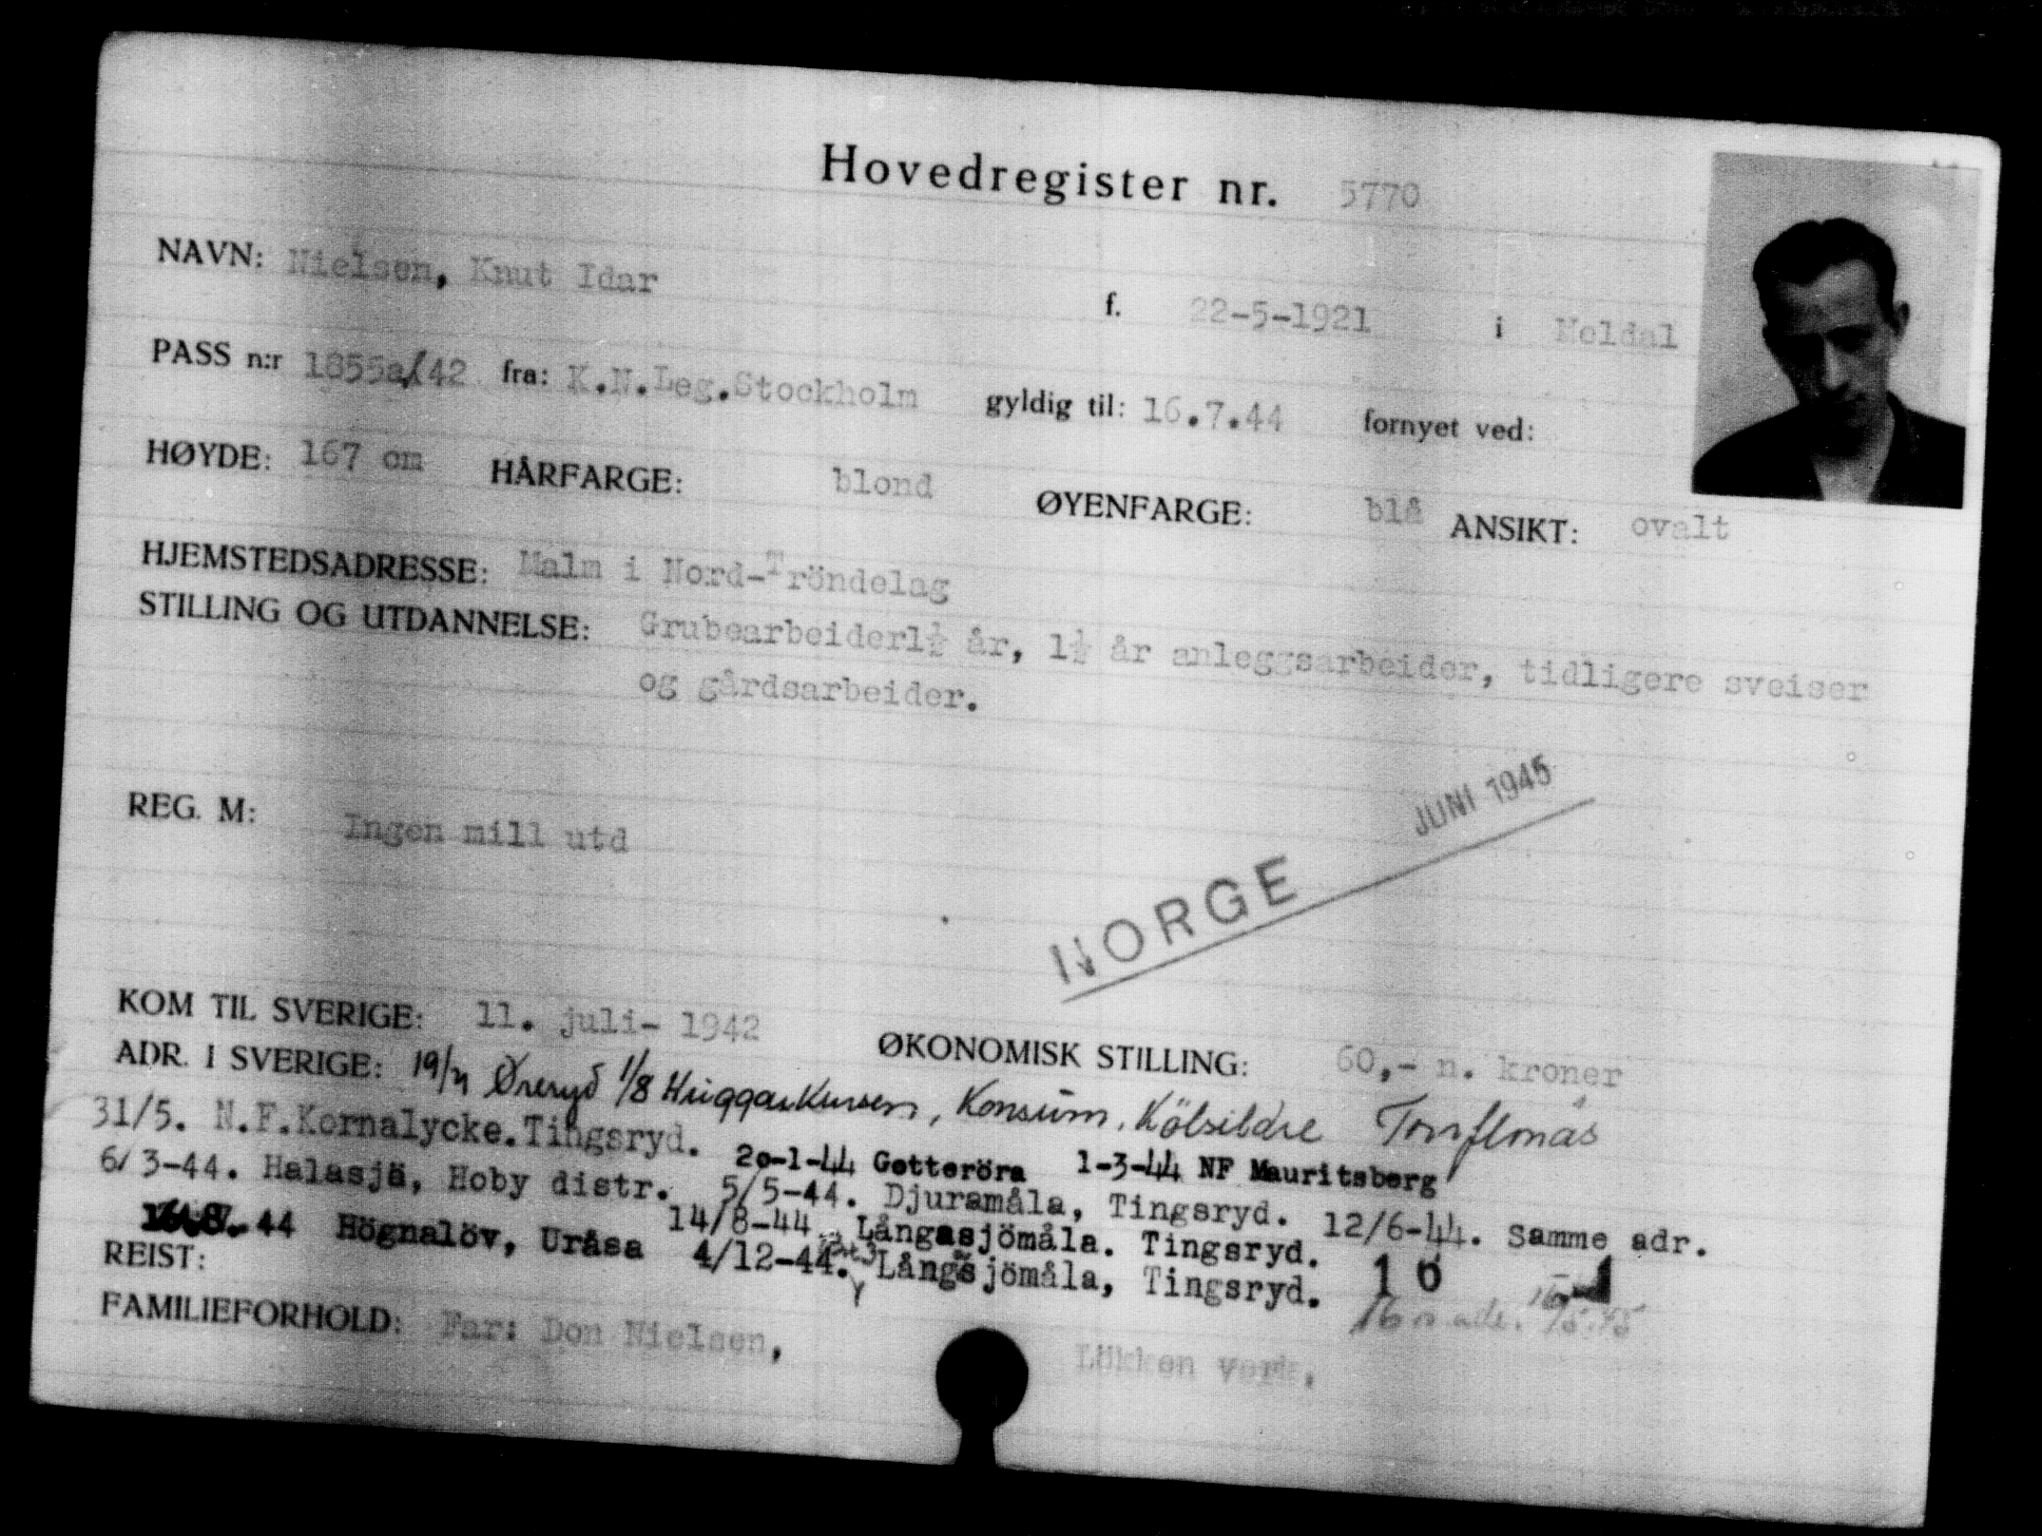 Hovedregister nr. 5770
NAVN: Nielsen, Knut Idar f. 22-5-1921 i Meldal
PASS n:r 1855a/42 fra: K.N.Leg.Stockholm gyldig til: 16.7.44 fornyet ved:
HØYDE: 167 cm HÅRFARGE: blond ØYENFARGE: blå ANSIKT: ovalt
HJEMSTEDSADRESSE: Malm i Nord-Tröndelag
STILLING OG UTDANNELSE: Grubearbeider1½ år, 1½ år anleggsarbeider, tidligere sveiser
og gårdsarbeider.
JUNI 1945
REG. M: Ingen mill utd
NORGE
KOM TIL SVERIGE: 11. juli- 1942 ØKONOMISK STILLING: 60,- n. kroner
ADR. I SVERIGE: Øreryd 1/8 Huggarkursen, Konsum, Kölsildre
31/5. N.F.Kornalycke.Tingsryd. 20-1-44 Gotteröra 1-3-44 NF Mauritsberg
6/3-44. Halasjö, Hoby distr. 5/5-44. Djuramåla, Tingsryd. 12/6-44. Samme adr.
14/8-44 Långasjömåla. Tingsryd.
44 Högnalöv, Uråsa 4/12-44. Långasjömåla, Tingsryd.
REIST:
FAMILIEFORHOLD: Far: Don Nielsen, Lökken verk,